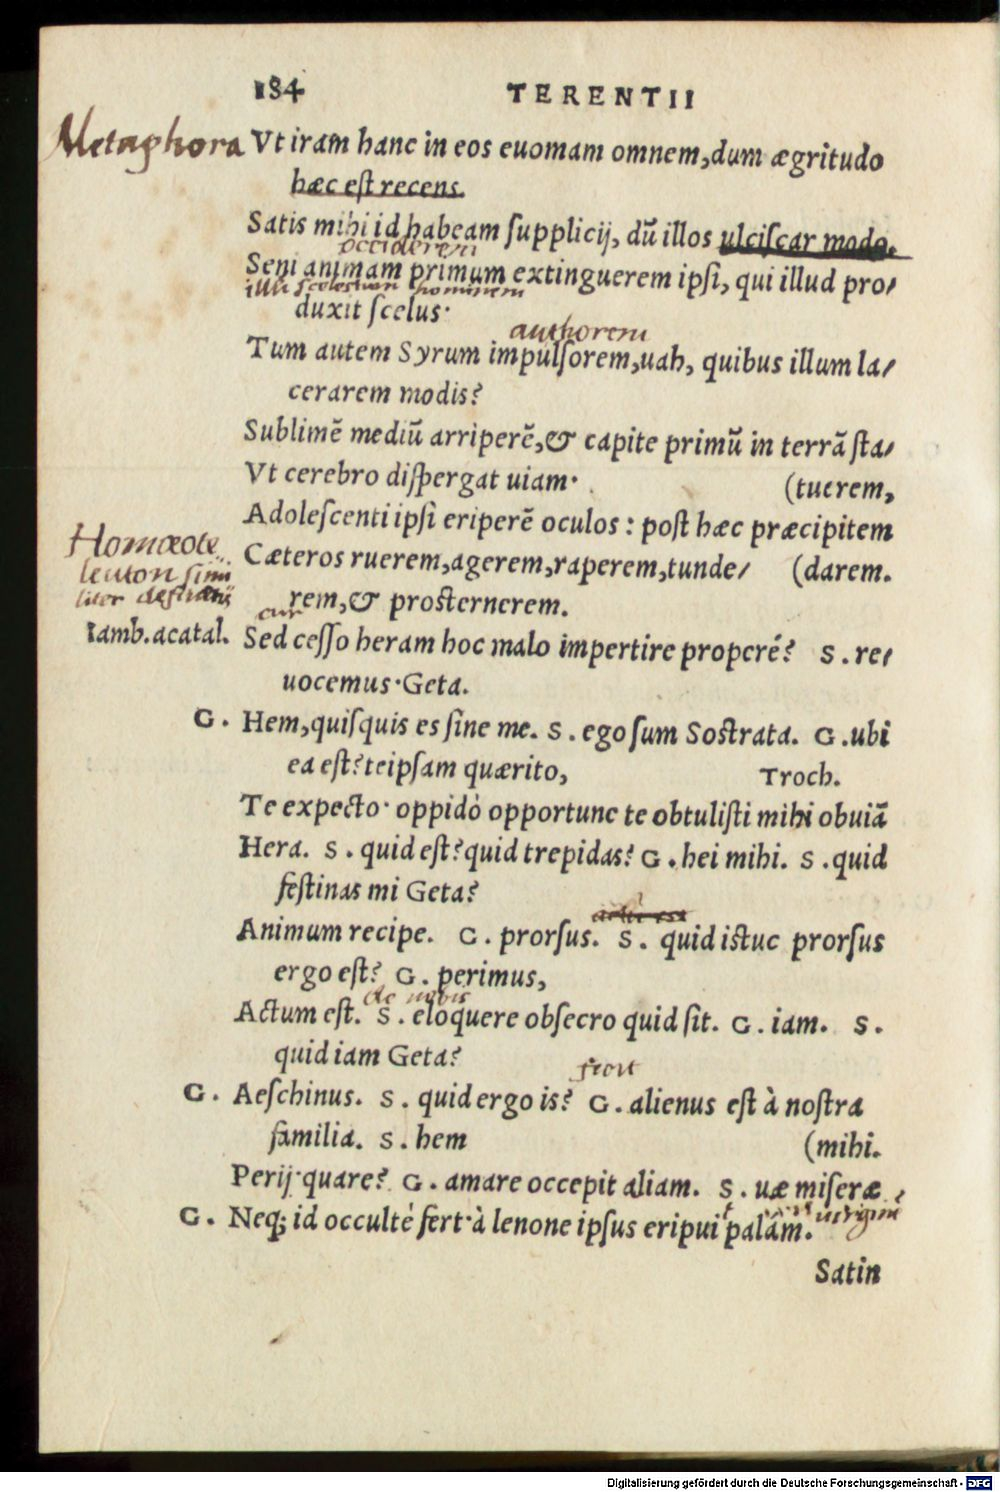 184 TERENTII
Metaphora Vt iram hanc in eos euomam omnem, dum ægritudo
hæc est recens.
Satis mihi id habeam ſupplicij, dũ illos ulciſcar modo.
occiderem
Seni animam primum extinguerem ipſi, qui illud pro/
illū scelestum hominem
duxit ſcelus·
authorem
Tum autem Syrum impulſorem, uah, quibus illum la/
cerarem modis?
Sublimẽ mediũ arriperẽ, & capite primũ in terrã ſta/
Vt cerebro diſpergat uiam· (tuerem,
Adoleſcenti ipſi eriperẽ oculos : poſt hæc præcipitem
Homœote
Cæteros ruerem, agerem, raperem, tunde/ (darem.
leuton simi
rem, & proſternerem.
liter
cur
Iamb. acatal. Sed ceſſo heram hoc malo impertire properé? S. re/
uocemus·Geta.
G. Hem, quiſquis es ſine me. S. ego ſum Soſtrata. G. ubi
ea eſt? teipſam quærito, Troch.
Te expecto· oppidò opportune te obtuliſti mihi obuiã
Hera. S. quid eſt? quid trepidas? G. hei mihi. S. quid
feſtinas mi Geta?
Animum recipe. G. prorſus. S. quid iſtuc prorſus
ergo eſt? G. perimus,
de nobis
Actum eſt. S. eloquere obſecro quid ſit. G. iam. S.
quid iam Geta?
G. Aeſchinus. S. quid ergo is? G. alienus eſt à noſtra
familia. S. hem (mihi.
Perij·quare? G. amare occepit aliam. S. uæ miſeræ
G. Neq; id occultè fert·à lenone ipſus eripui palàm.
Satin
Digitalisierung gefördert durch die Deutsche Forschungsgemeinschaft - DFG